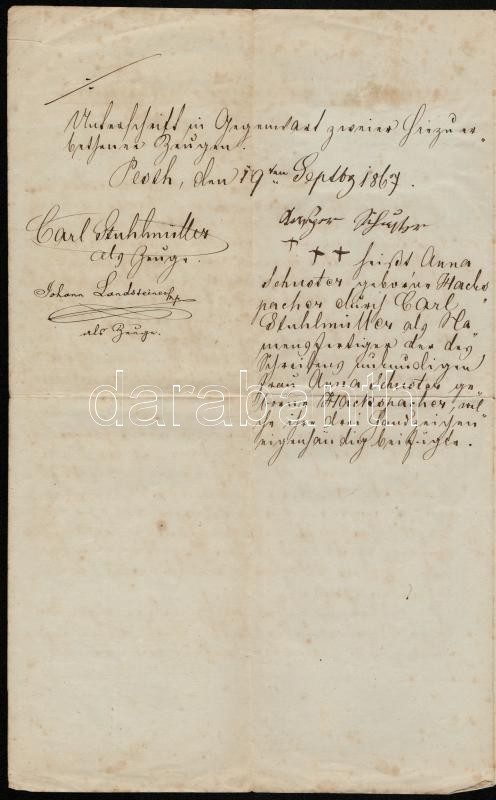 Unterschrift in Gegenwart zweier hiezu er-
bethener Zeugen.
Pesth, den 19ten Septbr 1867.
Carl Stuhlmüller
als Zeuge.
Johann Landsteiner
als Zeuge.
Schuster
+ + + heißt Anna
Schuster, geborne Hacks
pacher durch Carl
Stuhlmüller als Na-
mensfertiger der des
Schreibens unkundigen
Frau Anna Schuster ge-
borne Hackspacher, wel-
che ihre drei Handzeichen
eigenhändig beifügte.
darabanth